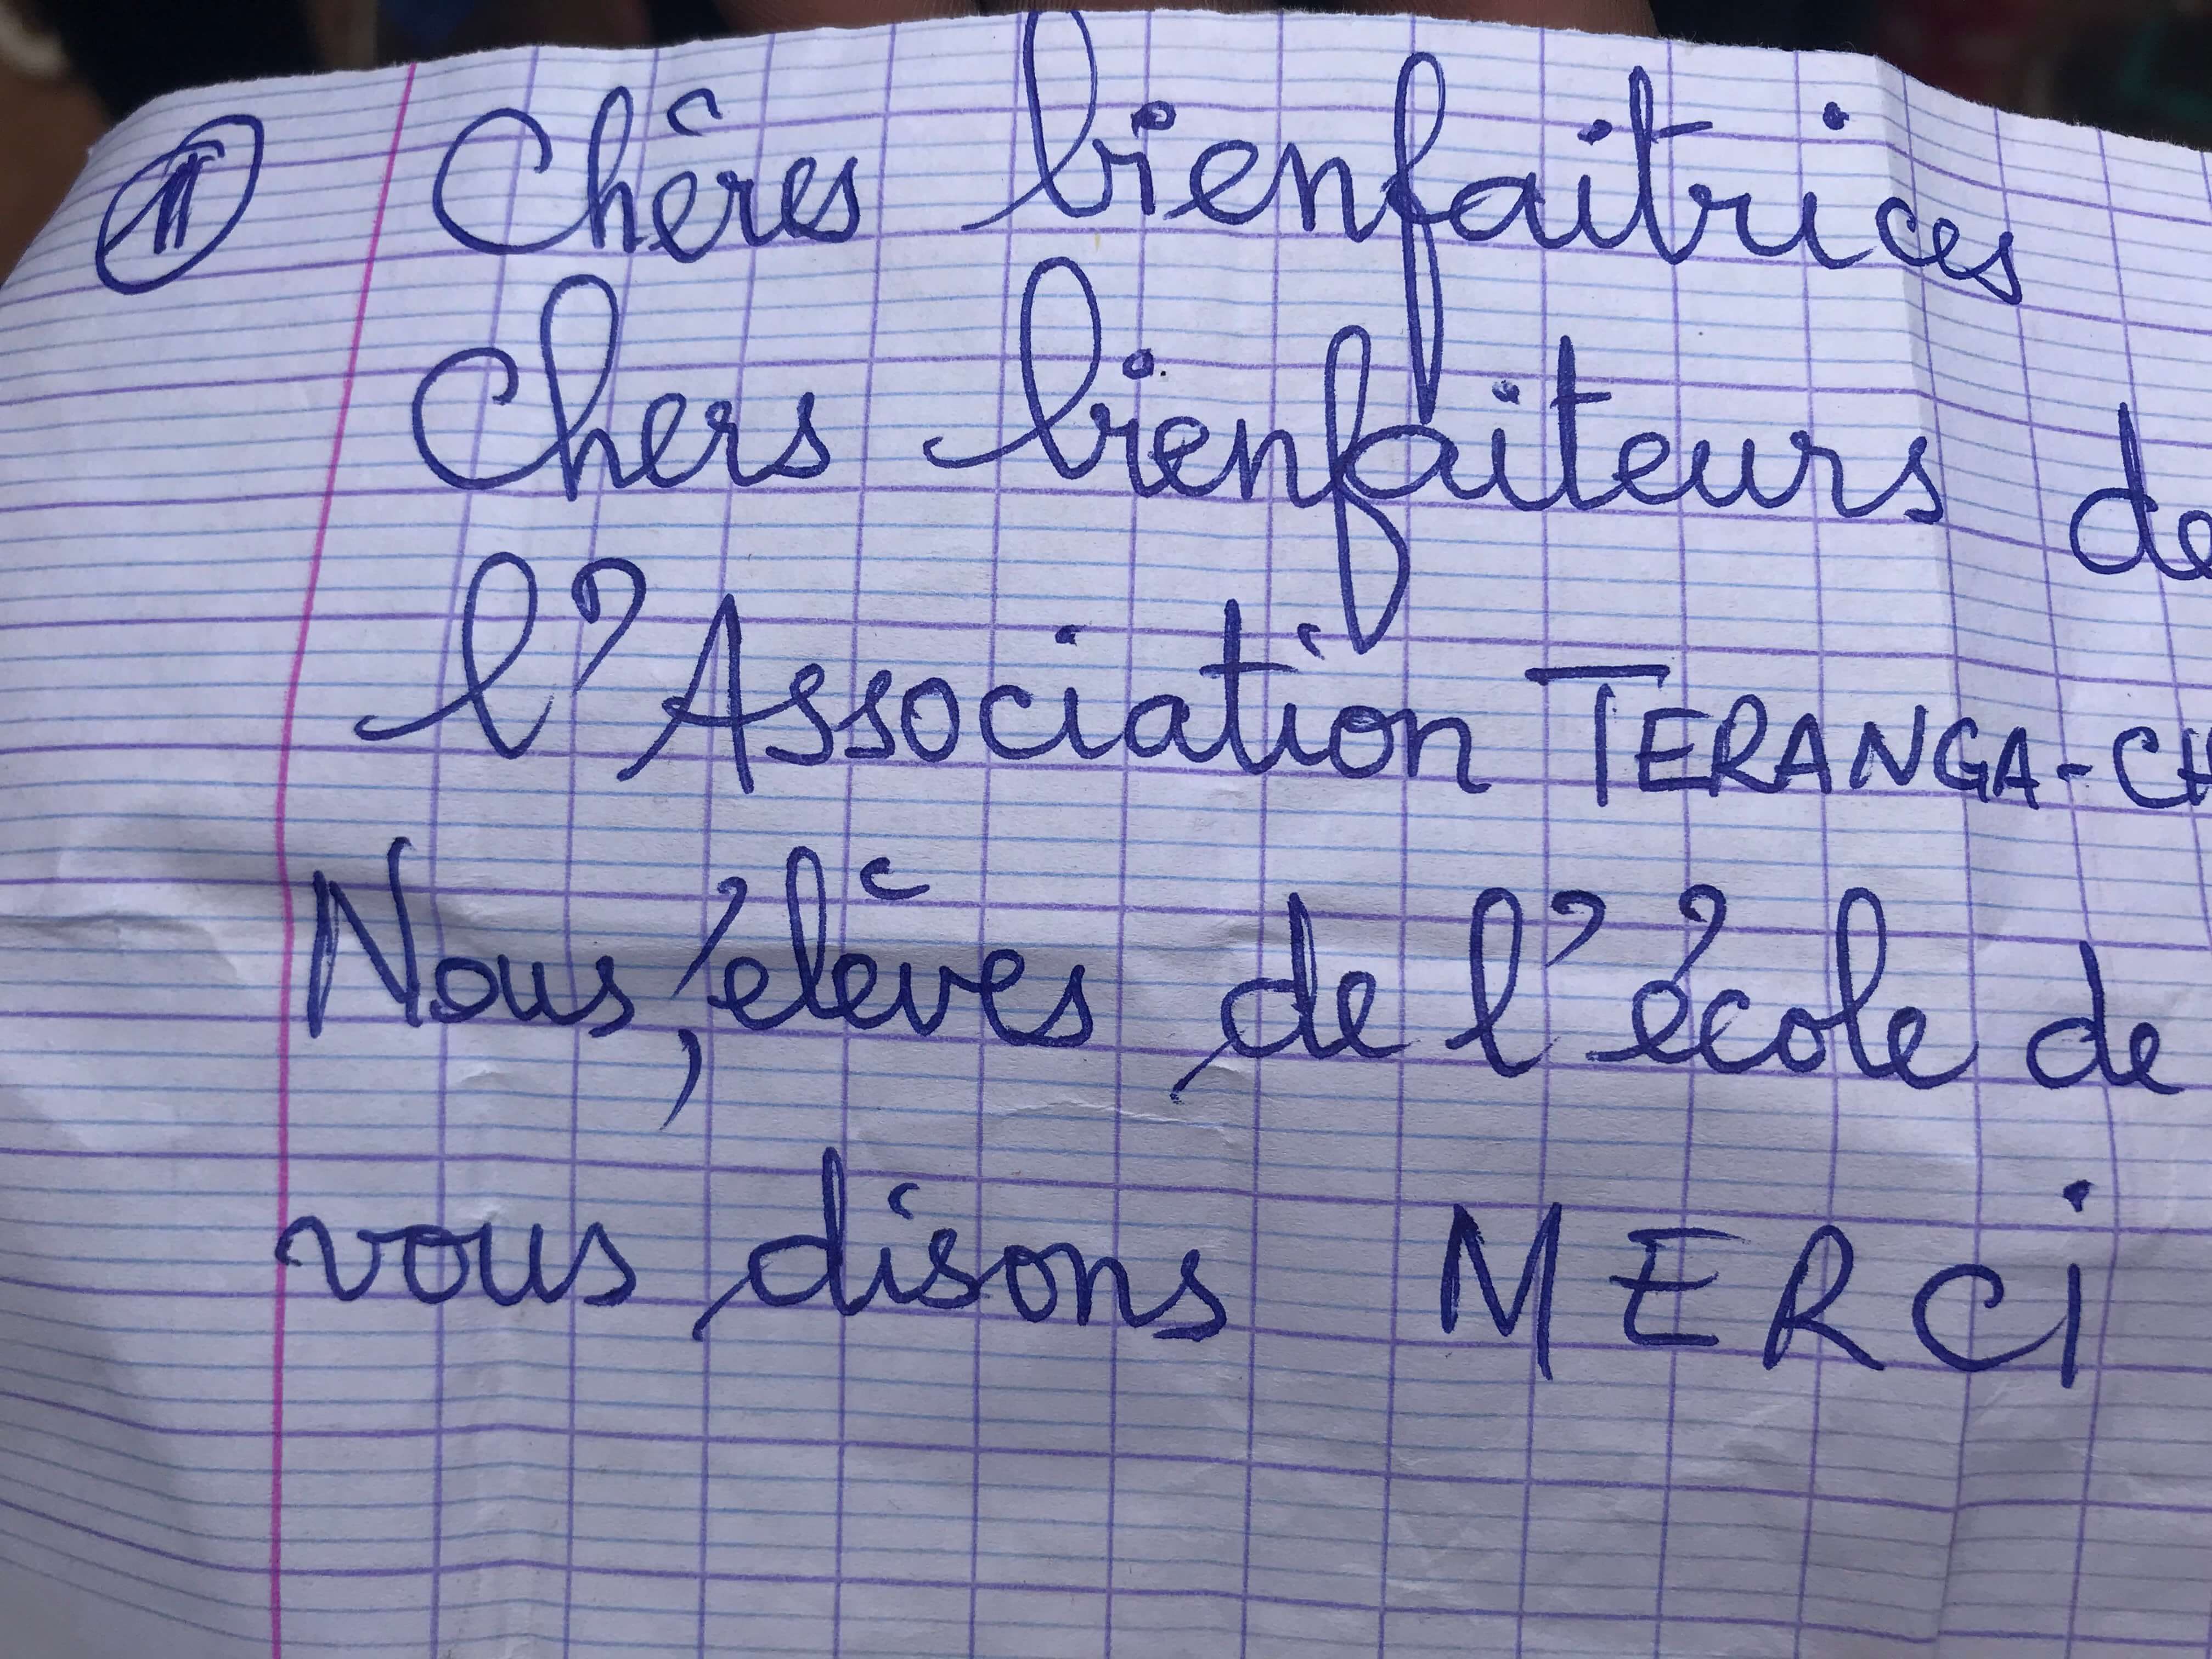 Chères bienfaitrices
Chers bienfaiteurs de
l'Association TERANGA-CH
Nous, élèves de l'école de
vous disons MERCi